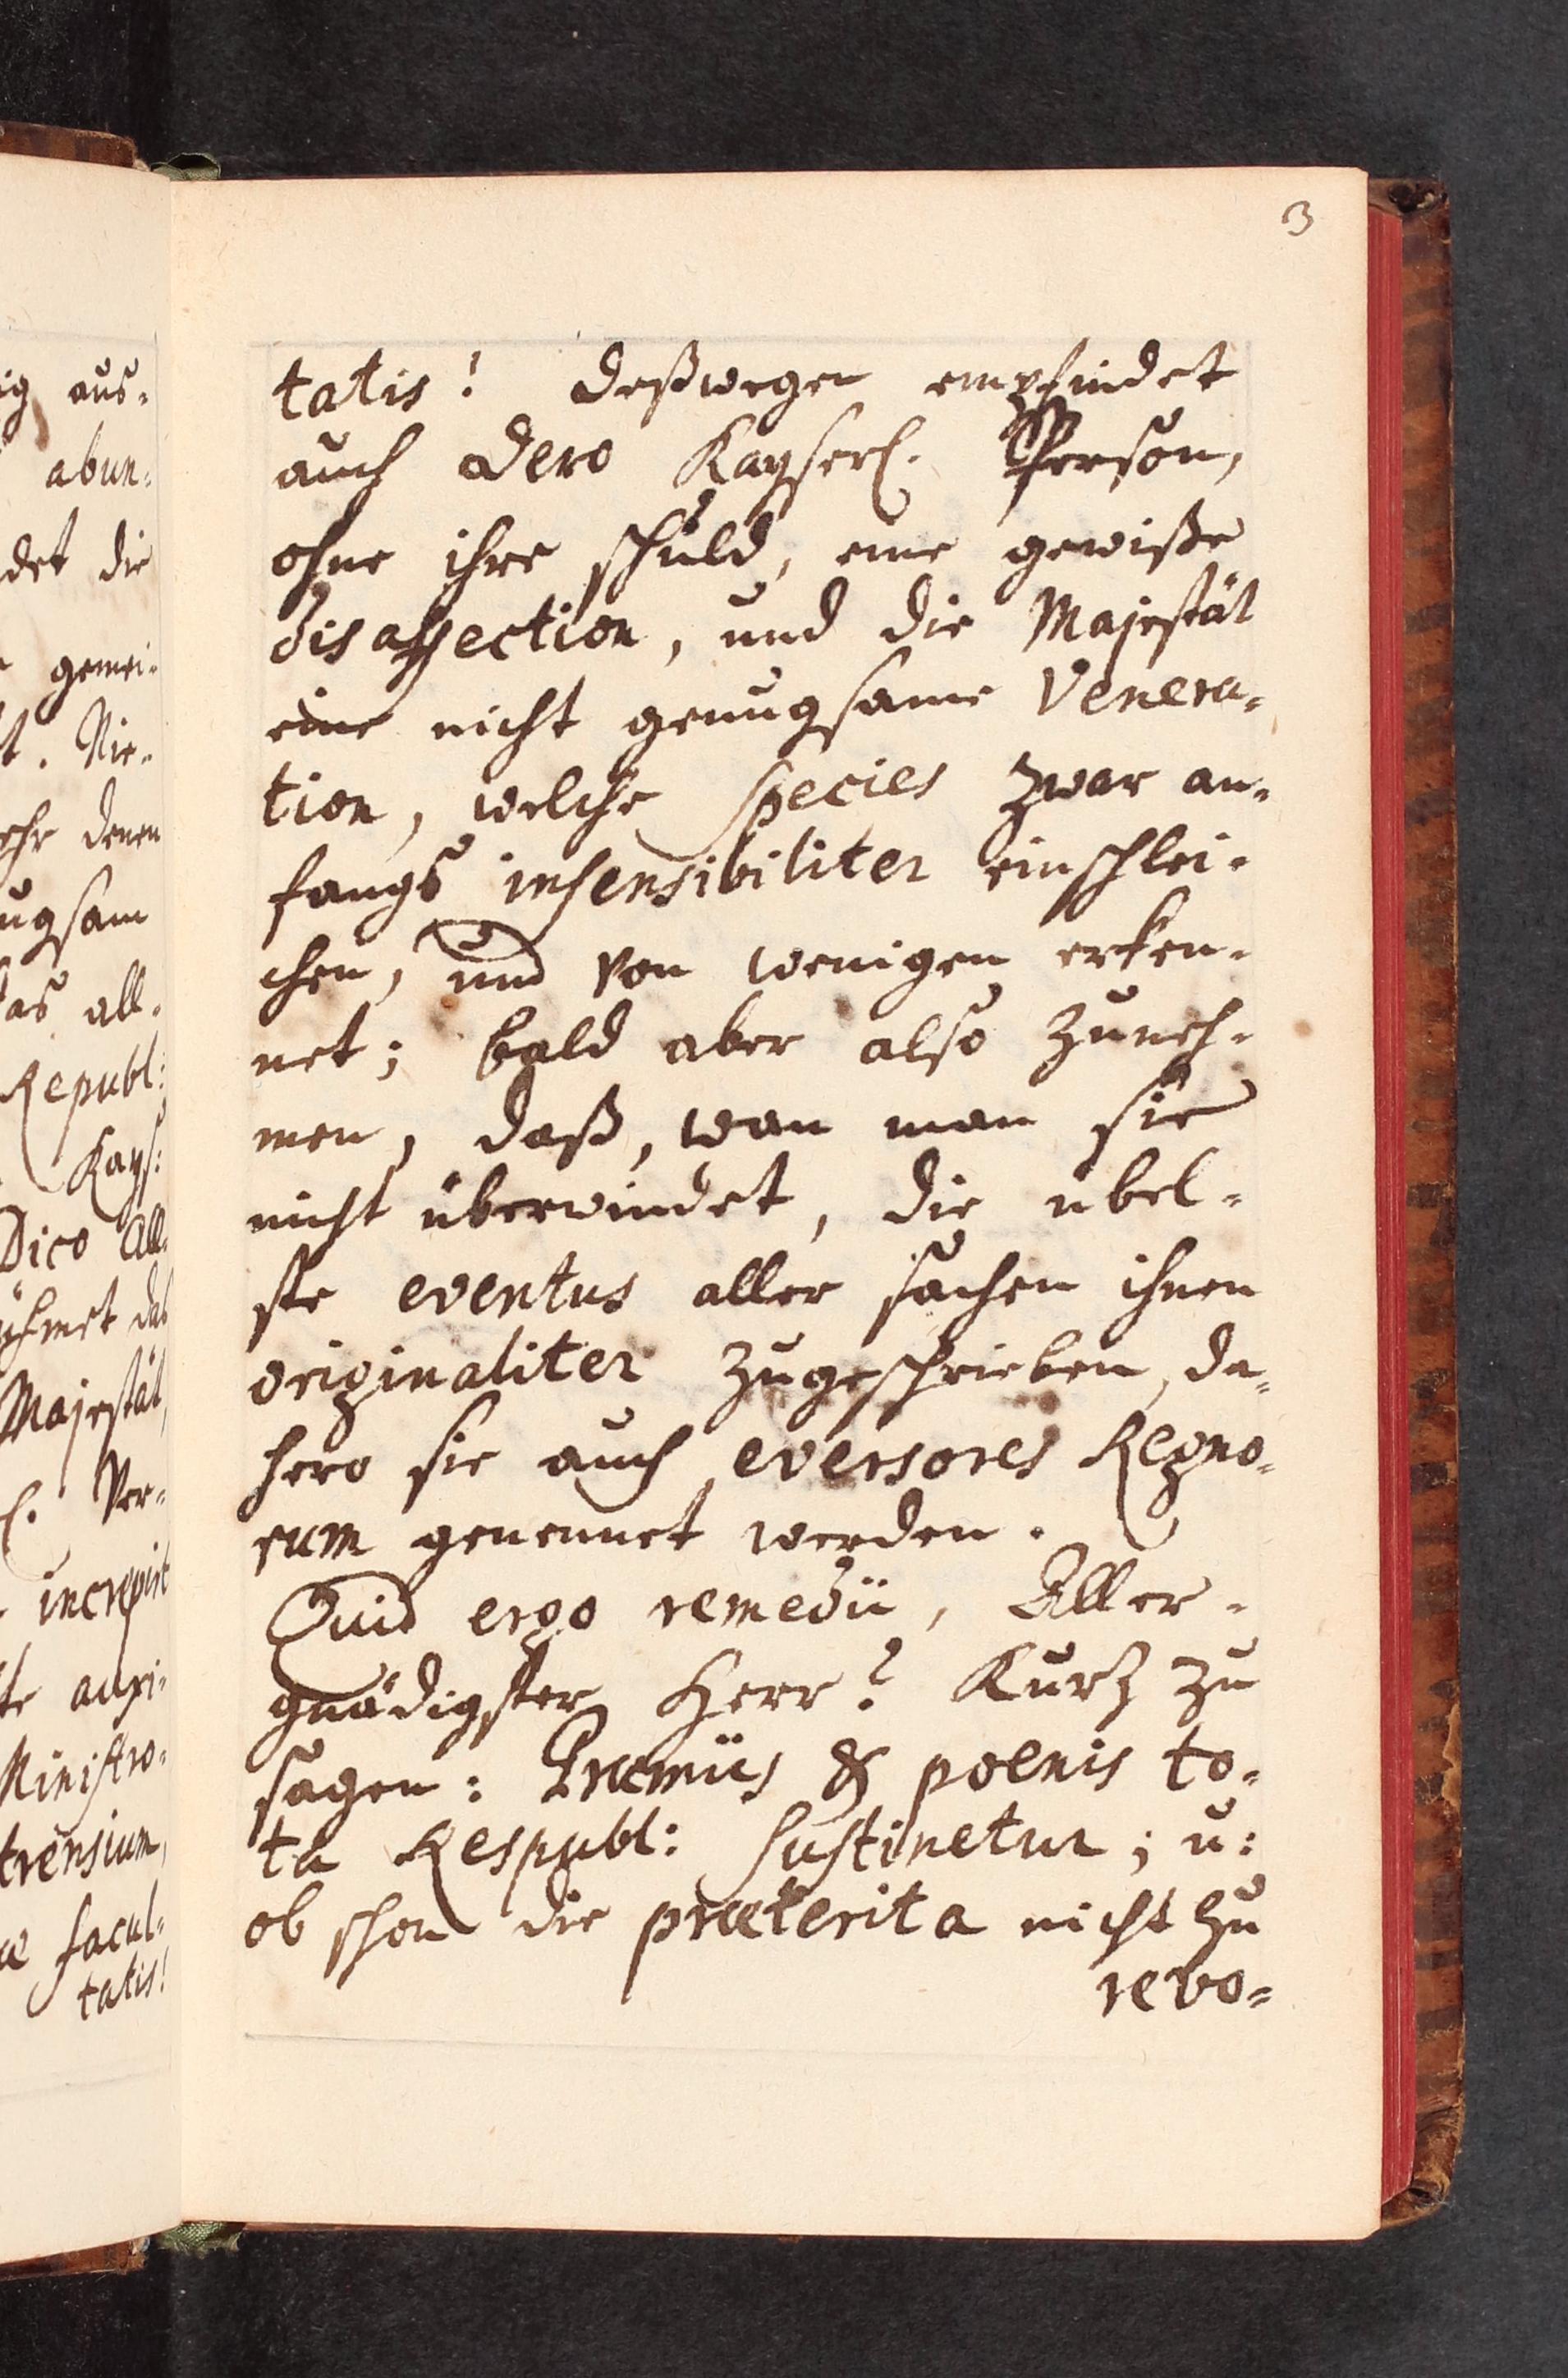 3
tatis! deßwegen empfindet
auch dero Kayserl. Person,
ohne ihre schuld, eine gewiße
disaffection, und die Majestät
eine nicht genugsame Venera-
tion, welche species zwar an-
fangs insensibiliter einschlei-
chen, und von wenigen erken-
net; bald aber also zuneh-
men, daß, wan man sie
nicht überwindet, die übel-
ste eventus aller sachen ihnen
originaliter zugeschrieben, da-
hero sie auch eversores Regno-
rum genennet werden.
Quid ergo remedii, Aller-
gnädigster Herr? Kurtz zu
sagen: Præmiis & poenis to-
ta Respubl: sustinetur; u:
ob schon die præterita nicht zu
revo-
ig aus-
abun-
det die
gemei-
Nie-
denen
ugsam
as all-
Republ:
Kays:
Dico All-
das
Majestät,
Ver-
increpirt
Ministro-
trensium,
æ facul-
tatis!